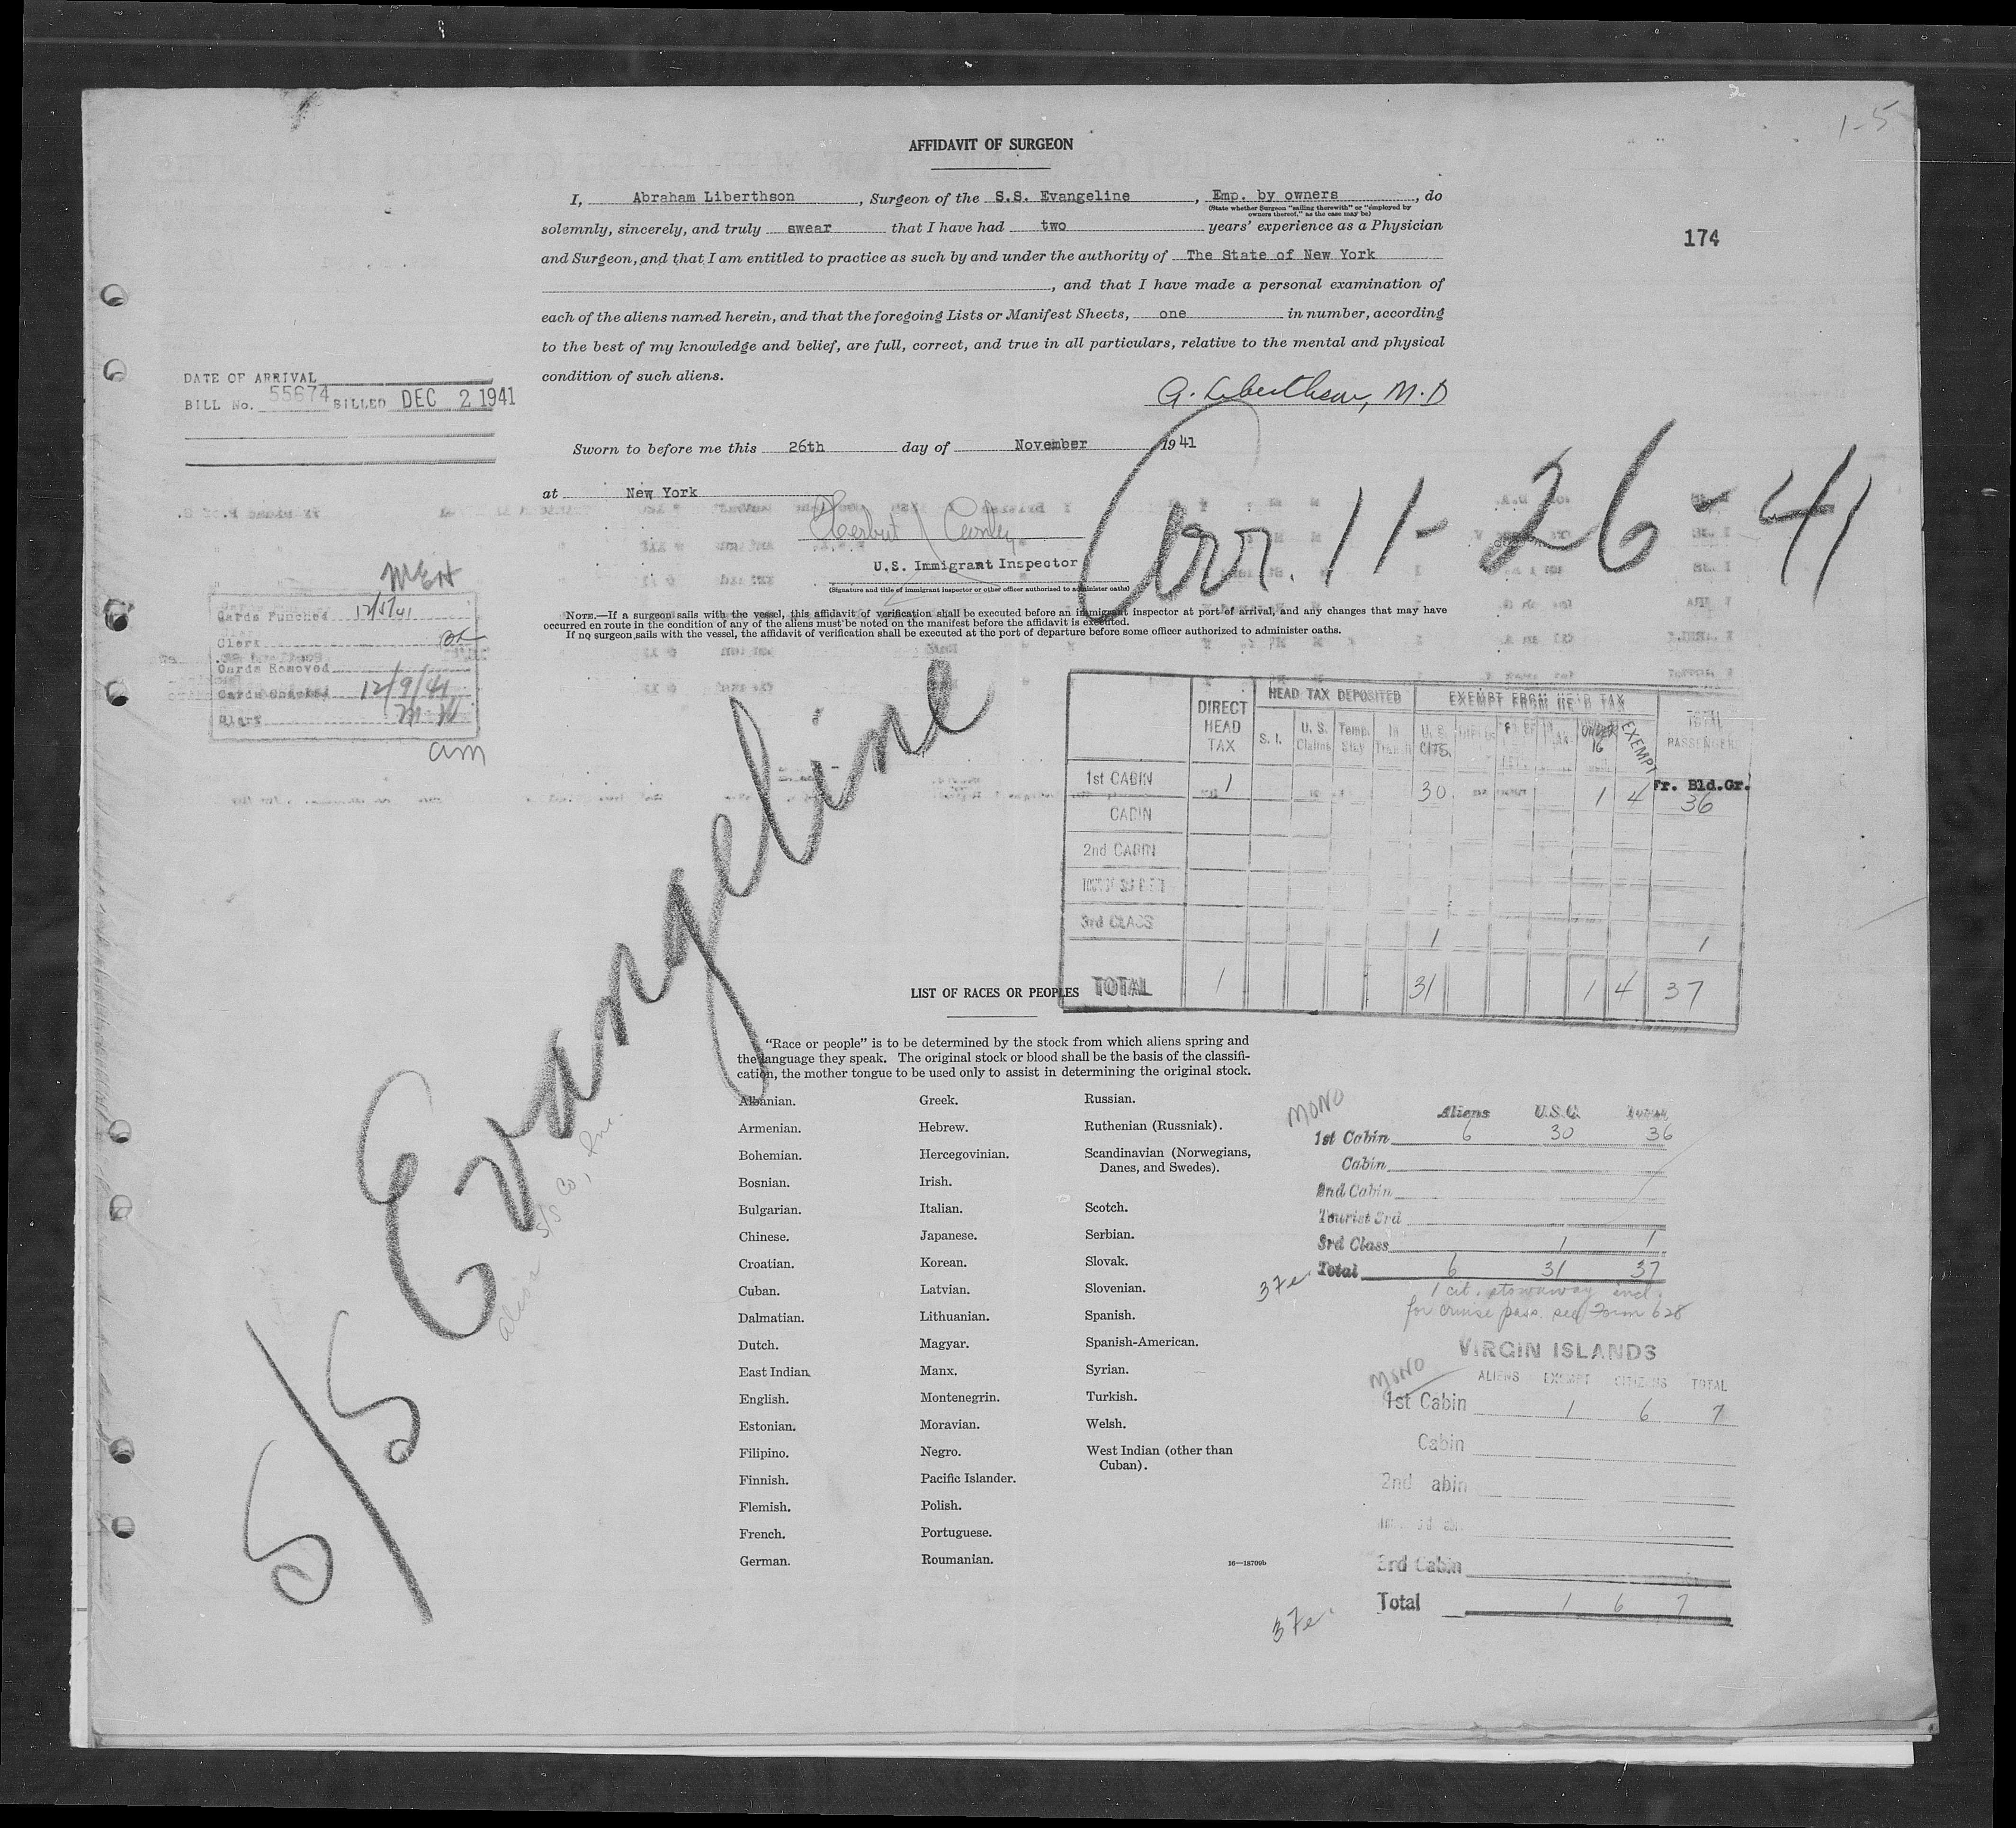 1-5
AFFIDAVIT OF SURGEON
I, Abraham Liberthson, Surgeon of the S.S. Evangeline, Emp. by owners, do
(State whether Surgeon "sailing therewith" or "employed by
owners thereof," as the case may be)
solemnly, sincerely, and truly swear that I have had two years' experience as a Physician
174
and Surgeon, and that I am entitled to practice as such by and under the authority of The State of New York
, and that I have made a personal examination of
each of the aliens named herein, and that the foregoing Lists or Manifest Sheets, one in number, according
to the best of my knowledge and belief, are full, correct, and true in all particulars, relative to the mental and physical
condition of such aliens.
DATE OF ARRIVAL
BILL No. 55674 BILLED DEC 2 1941
A. Liberthson, M.D
Sworn to before me this 26th day of November 1941
at New York
Arr. 11-26-41
Herbert
U.S. Immigrant Inspector
(Signature and title of immigrant inspector or other officer authorized to administer oaths)
NOTE.—If a surgeon sails with the vessel, this affidavit of verification shall be executed before an immigrant inspector at port of arrival, and any changes that may have
occurred en route in the condition of any of the aliens must be noted on the manifest before the affidavit is executed.
If no surgeon sails with the vessel, the affidavit of verification shall be executed at the port of departure before some officer authorized to administer oaths.
MEH
Cards Punched 12/5/41
Clerk
Cards Removed
Cards Checked 12/9/41
Clerk
am
S/S Evangeline
DIRECT HEAD TAX
HEAD TAX DEPOSITED
EXEMPT FROM HEAD TAX
TOTAL PASSENGERS
S. I. U. S. Claims Temp. Stay In Transit U. S. CITS. UNDER 16 EXEMPT
Fr. Bld.Gr.
1st CABIN 1 30 1 4 36
CABIN
2nd CABIN
3rd CLASS 1 1
TOTAL 1 31 1 4 37
LIST OF RACES OR PEOPLES
"Race or people" is to be determined by the stock from which aliens spring and
the language they speak. The original stock or blood shall be the basis of the classifi-
cation, the mother tongue to be used only to assist in determining the original stock.
Albanian.
Armenian.
Bohemian.
Bosnian.
Bulgarian.
Chinese.
Croatian.
Cuban.
Dalmatian.
Dutch.
East Indian
English.
Estonian.
Filipino.
Finnish.
Flemish.
French.
German.
Greek.
Hebrew.
Hercegovinian.
Irish.
Italian.
Japanese.
Korean.
Latvian.
Lithuanian.
Magyar.
Manx.
Montenegrin.
Moravian.
Negro.
Pacific Islander.
Polish.
Portuguese.
Roumanian.
Russian.
Ruthenian (Russniak).
Scandinavian (Norwegians,
Danes, and Swedes).
Scotch.
Serbian.
Slovak.
Slovenian.
Spanish.
Spanish-American.
Syrian.
Turkish.
Welsh.
West Indian (other than
Cuban).
16—18709b
MONO
Aliens U.S.C. Total
1st Cabin 6 30 36
Cabin
2nd Cabin
Tourist 3rd
3rd Class 1 1
Total 6 31 37
37e
1 cit. stowaway incl.
for cruise pass. see Form 628
VIRGIN ISLANDS
MONO
ALIENS EXEMPT CITIZENS TOTAL
1st Cabin 1 6 7
Cabin
2nd abin
3rd Cabin
Total 1 6 7
37e